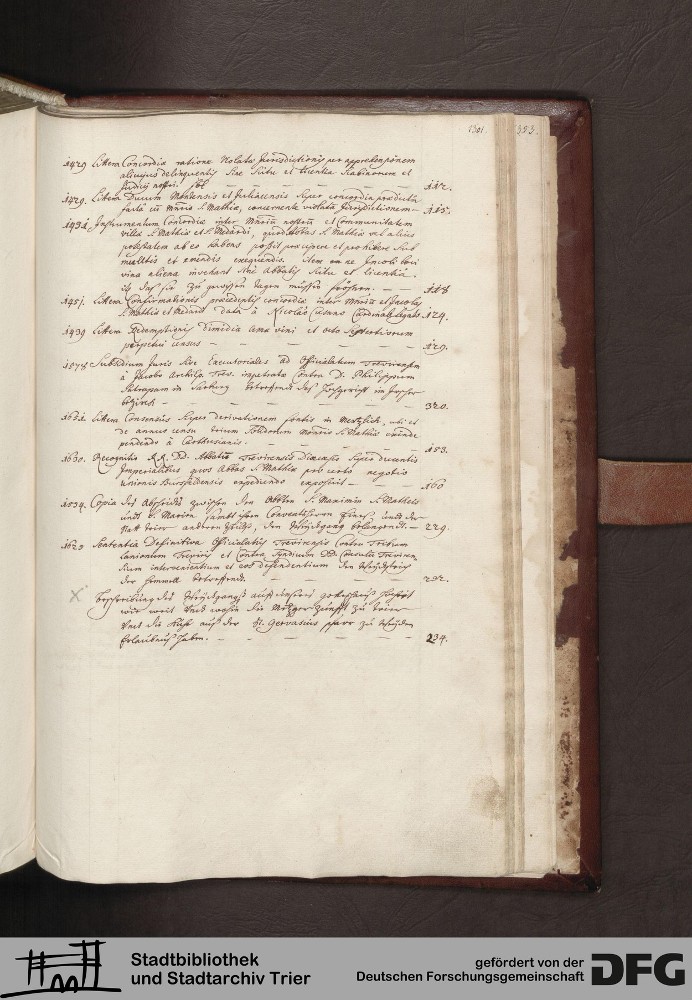 1301. 353.
1429 Littera Concordia ratione Violatæ Jurisdictionis per apprehensionem
alicuius delinquentis sine Scitu et licentia Scabinorum et
Judicis nostri fol — — — — 112.
1429. Littera Ducum Montensis et Juliacensis super concordia prædicta
facta cum Mnrio S. Mathiæ, concernente violatā jurisdictionem — 115.
1434 Instrumentum Concordiæ inter Mnrium nostrum et Communitatem
villæ S. Mathiæ et S. Medardi, quod Abbas S. Mathiæ vel alius
potestatem ab eo habens possit præcipere et prohibere sub
mulctis et emendis exequendis. Item an ne Incolæ loci
vina aliena invehant sine Abbatis Scitu et licentiâ.
— — 118
1451. Littera Confirmationis præcedentis concordiæ inter Mnriū et Incolas
S. Mathiæ et Medardi data à Nicolao Cusano Cardinali Legato. 124.
1439 Littera Redemptionis dimidiæ ama vini et octo Sestertiorum
perpetui census — — — — 129.
1578 Subsidium Juris sive Executoriales ad Officialatum Trevirensem
à Jacobo Archiep. Trev. impetratæ Contra D. Philippum
Satrapam in Sarburg
— — — — 320.
Littera Consensus super derivatione fontis in Mertzlich, uti et
de annuo censu trium Solidorum Mnrio S. Mathiæ
pendendo à Carthusianis. — — — 153.
1630. Recognitio RR. DD. Abbatū Trevirensis Diœcesis super ducentis
Imperialibus quos Abbas S. Mathiæ pro certo negotio
unionis Bursfeldensis expediendo exposuit — — — 160
1534. Copia des Abscheids zwischen den Abbten S. Maximin S. Matheis
undt S. Marien sambt ihren Conventsherren eines, undt der
Statt Trier anderen theils, den Weydtgang belangendt. — 229.
1623 Sententia Definitiva Officialatus Trevirensis Contra Tribum
Lanionum Treviris et Contra Syndicum DD. Consulū Treviren-
sium intervenientium et eos defendentium den
der betreffendt. — — — 232.
X Beschreibung des Weydtgangs
wie weit undt wohin die Metzger Zunfft zu Trier
undt die Kühe auß der St. Gervasius pfarr zu weyden
Erlaubnus haben. — — — — 234.
Stadtbibliothek
und Stadtarchiv Trier
gefördert von der
Deutschen Forschungsgemeinschaft
DFG